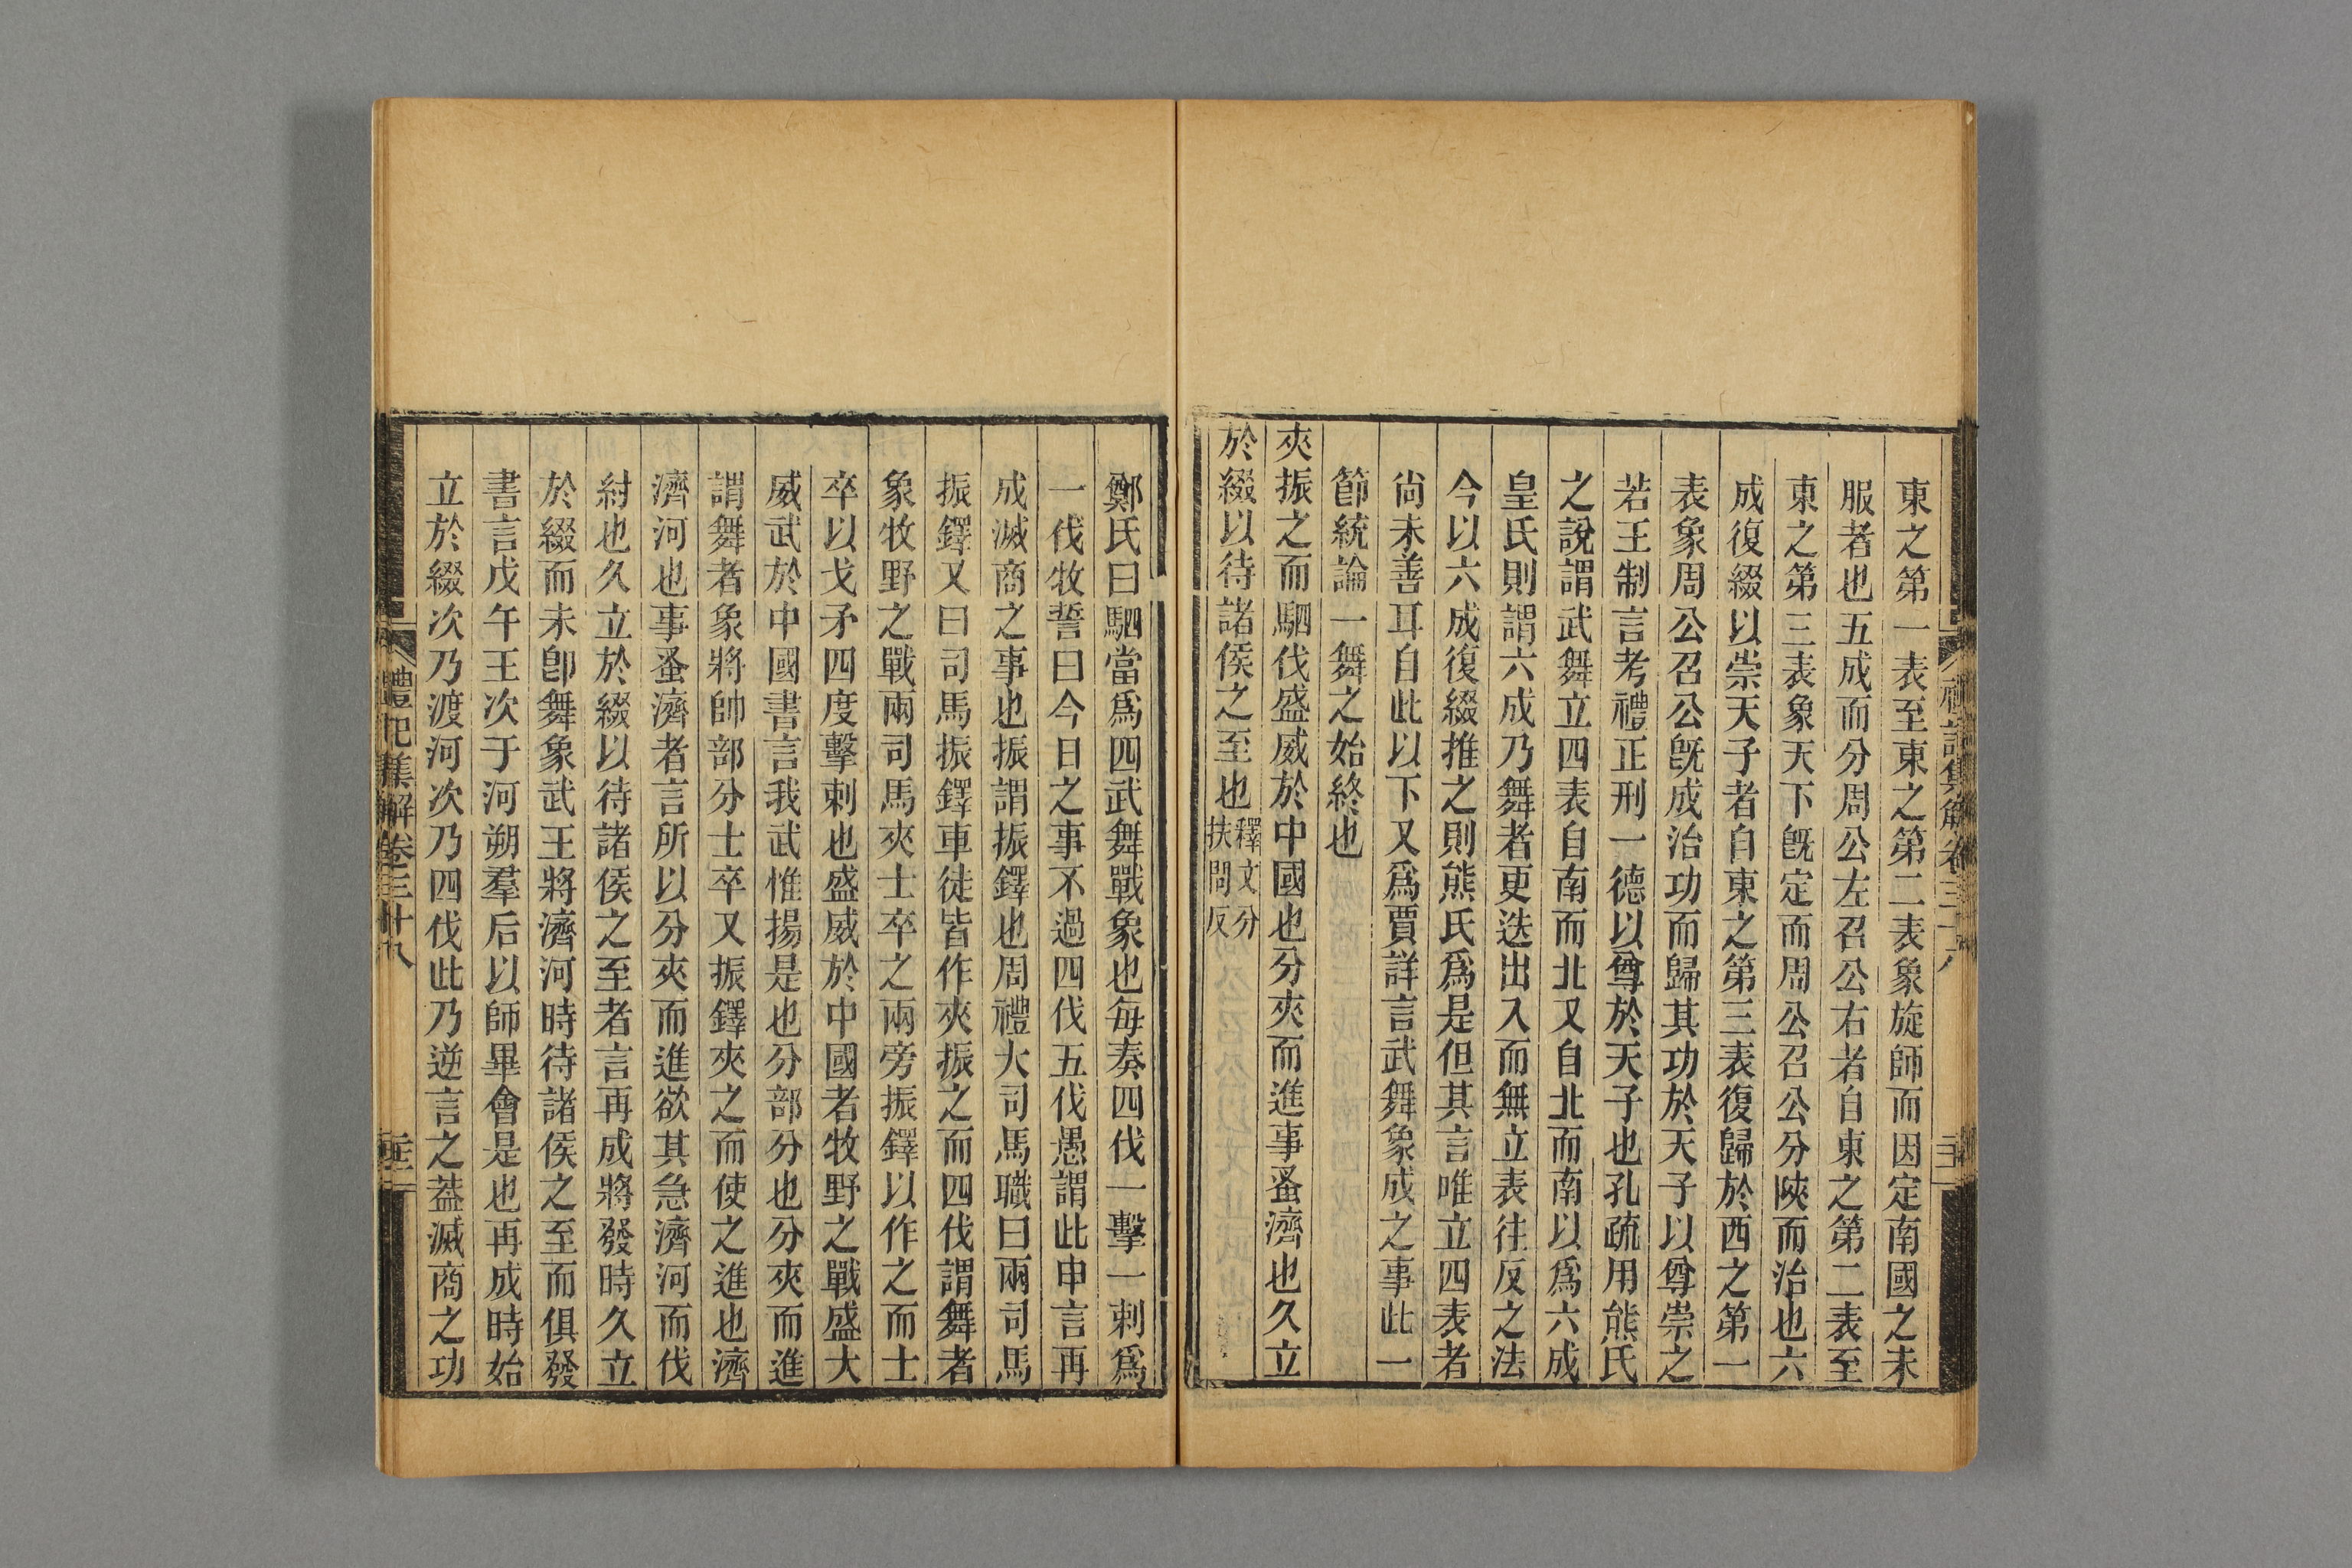 東之第一表至東之第二表象旋師而因定南國之未
服者也五成而分周公左召公右者自東之第二表至
東之第三表象天下旣定而周公召公分陝而治也六
成復綴以崇天子者自東之第三表復歸於西之第一
表象周公召公旣成治功而歸其功於天子以尊崇之
若王制言考禮正刑一德以尊於天子也孔疏用熊氏
之說謂武舞立四表自南而北又自北而南以爲六成
皇氏則謂六成乃舞者更迭出入而無立表往反之法
今以六成復綴推之則熊氏爲是但其言唯立四表者
尙未善耳自此以下又爲賈詳言武舞象成之事此一
節統論一舞之始終也
夾振之而駟伐盛威於中國也分夾而進事蚤濟也久立
於綴以待諸侯之至也釋文分扶問反
鄭氏曰駟當爲四武舞戰象也每奏四伐一擊一刺爲
一伐牧誓曰今日之事不過四伐五伐愚謂此申言再
成滅商之事也振謂振鐸也周禮大司馬職曰兩司馬
振鐸又曰司馬振鐸車徒皆作夾振之而四伐謂舞者
象牧野之戰兩司馬夾士卒之兩旁振鐸以作之而士
卒以戈矛四度擊刺也盛威於中國者牧野之戰盛大
威武於中國書言我武惟揚是也分部分也分夾而進
謂舞者象將帥部分士卒又振鐸夾之而使之進也濟
濟河也事蚤濟者言所以分夾而進欲其急濟河而伐
紂也久立於綴以待諸侯之至者言再成將發時久立
於綴而未卽舞象武王將濟河時待諸侯之至而俱發
書言戊午王次于河朔羣后以師畢會是也再成時始
立於綴次乃渡河次乃四伐此乃逆言之葢滅商之功
禮記集解卷三十八